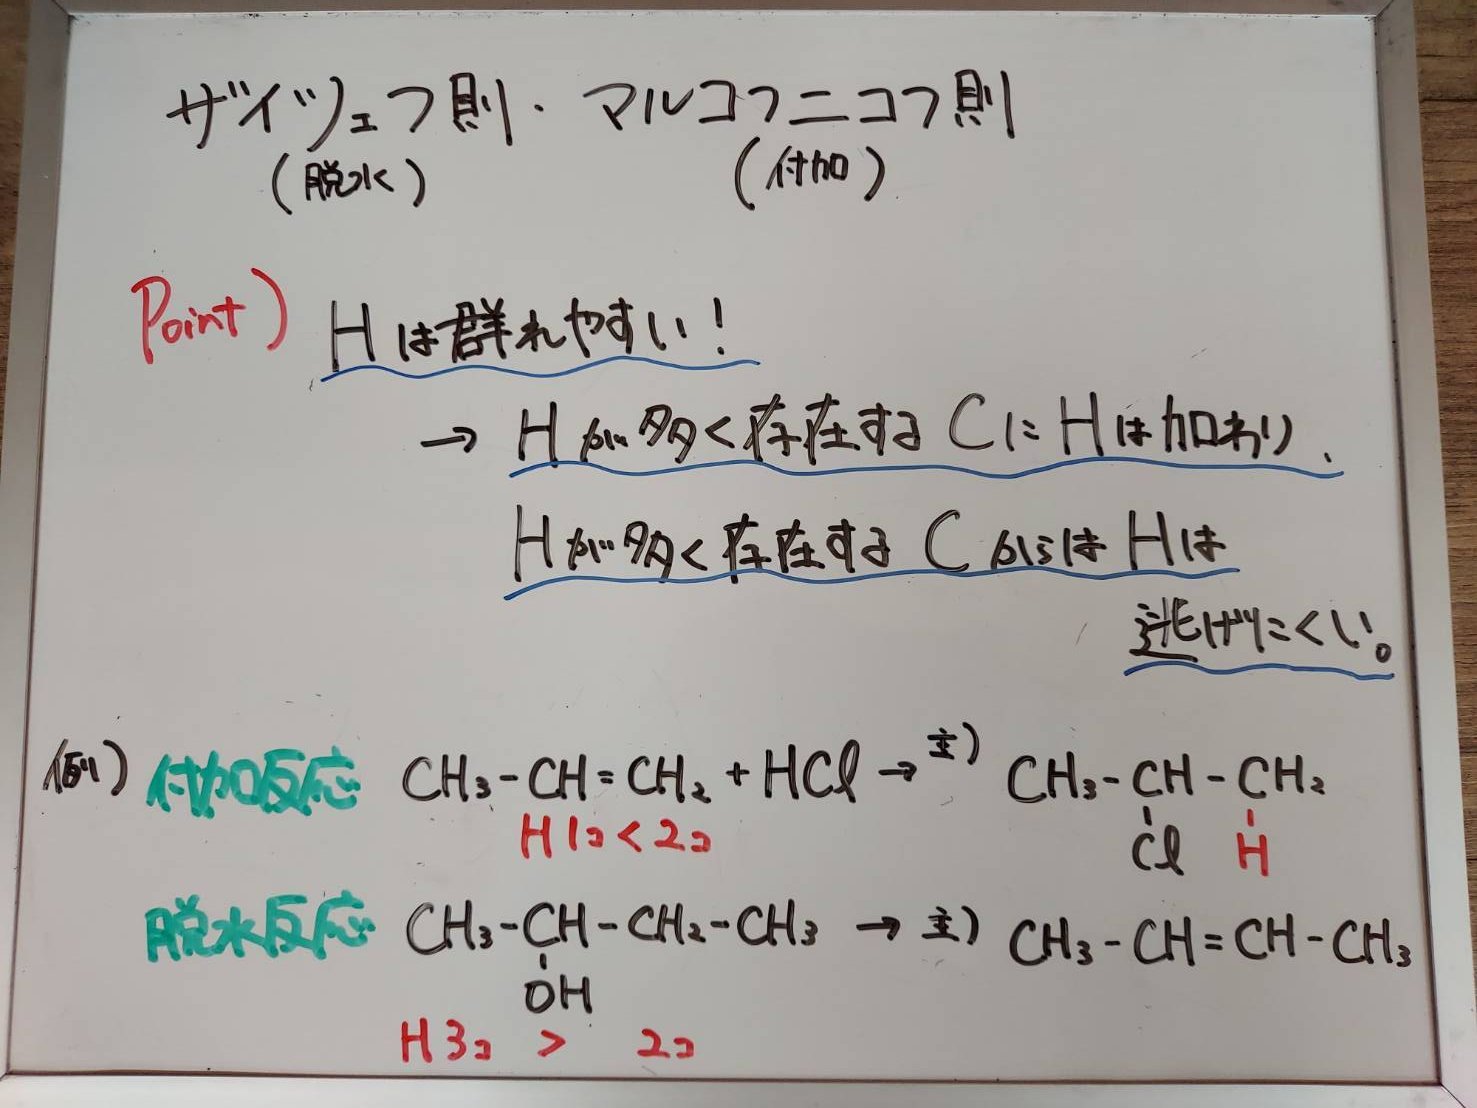 ザイツェフ則・マルコフニコフ則
(脱水) (付加)
Point) Hは群れやすい!
→ Hが多く存在するCにHは加わり、
Hが多く存在するCからはHは
逃げにくい。
例) 付加反応 CH₃-CH=CH₂+HCl→主) CH₃-CH-CH₂
H1コ<2コ Cl H
脱水反応 CH₃-CH-CH₂-CH₃ → 主) CH₃-CH=CH-CH₃
OH
H3コ > 2コ